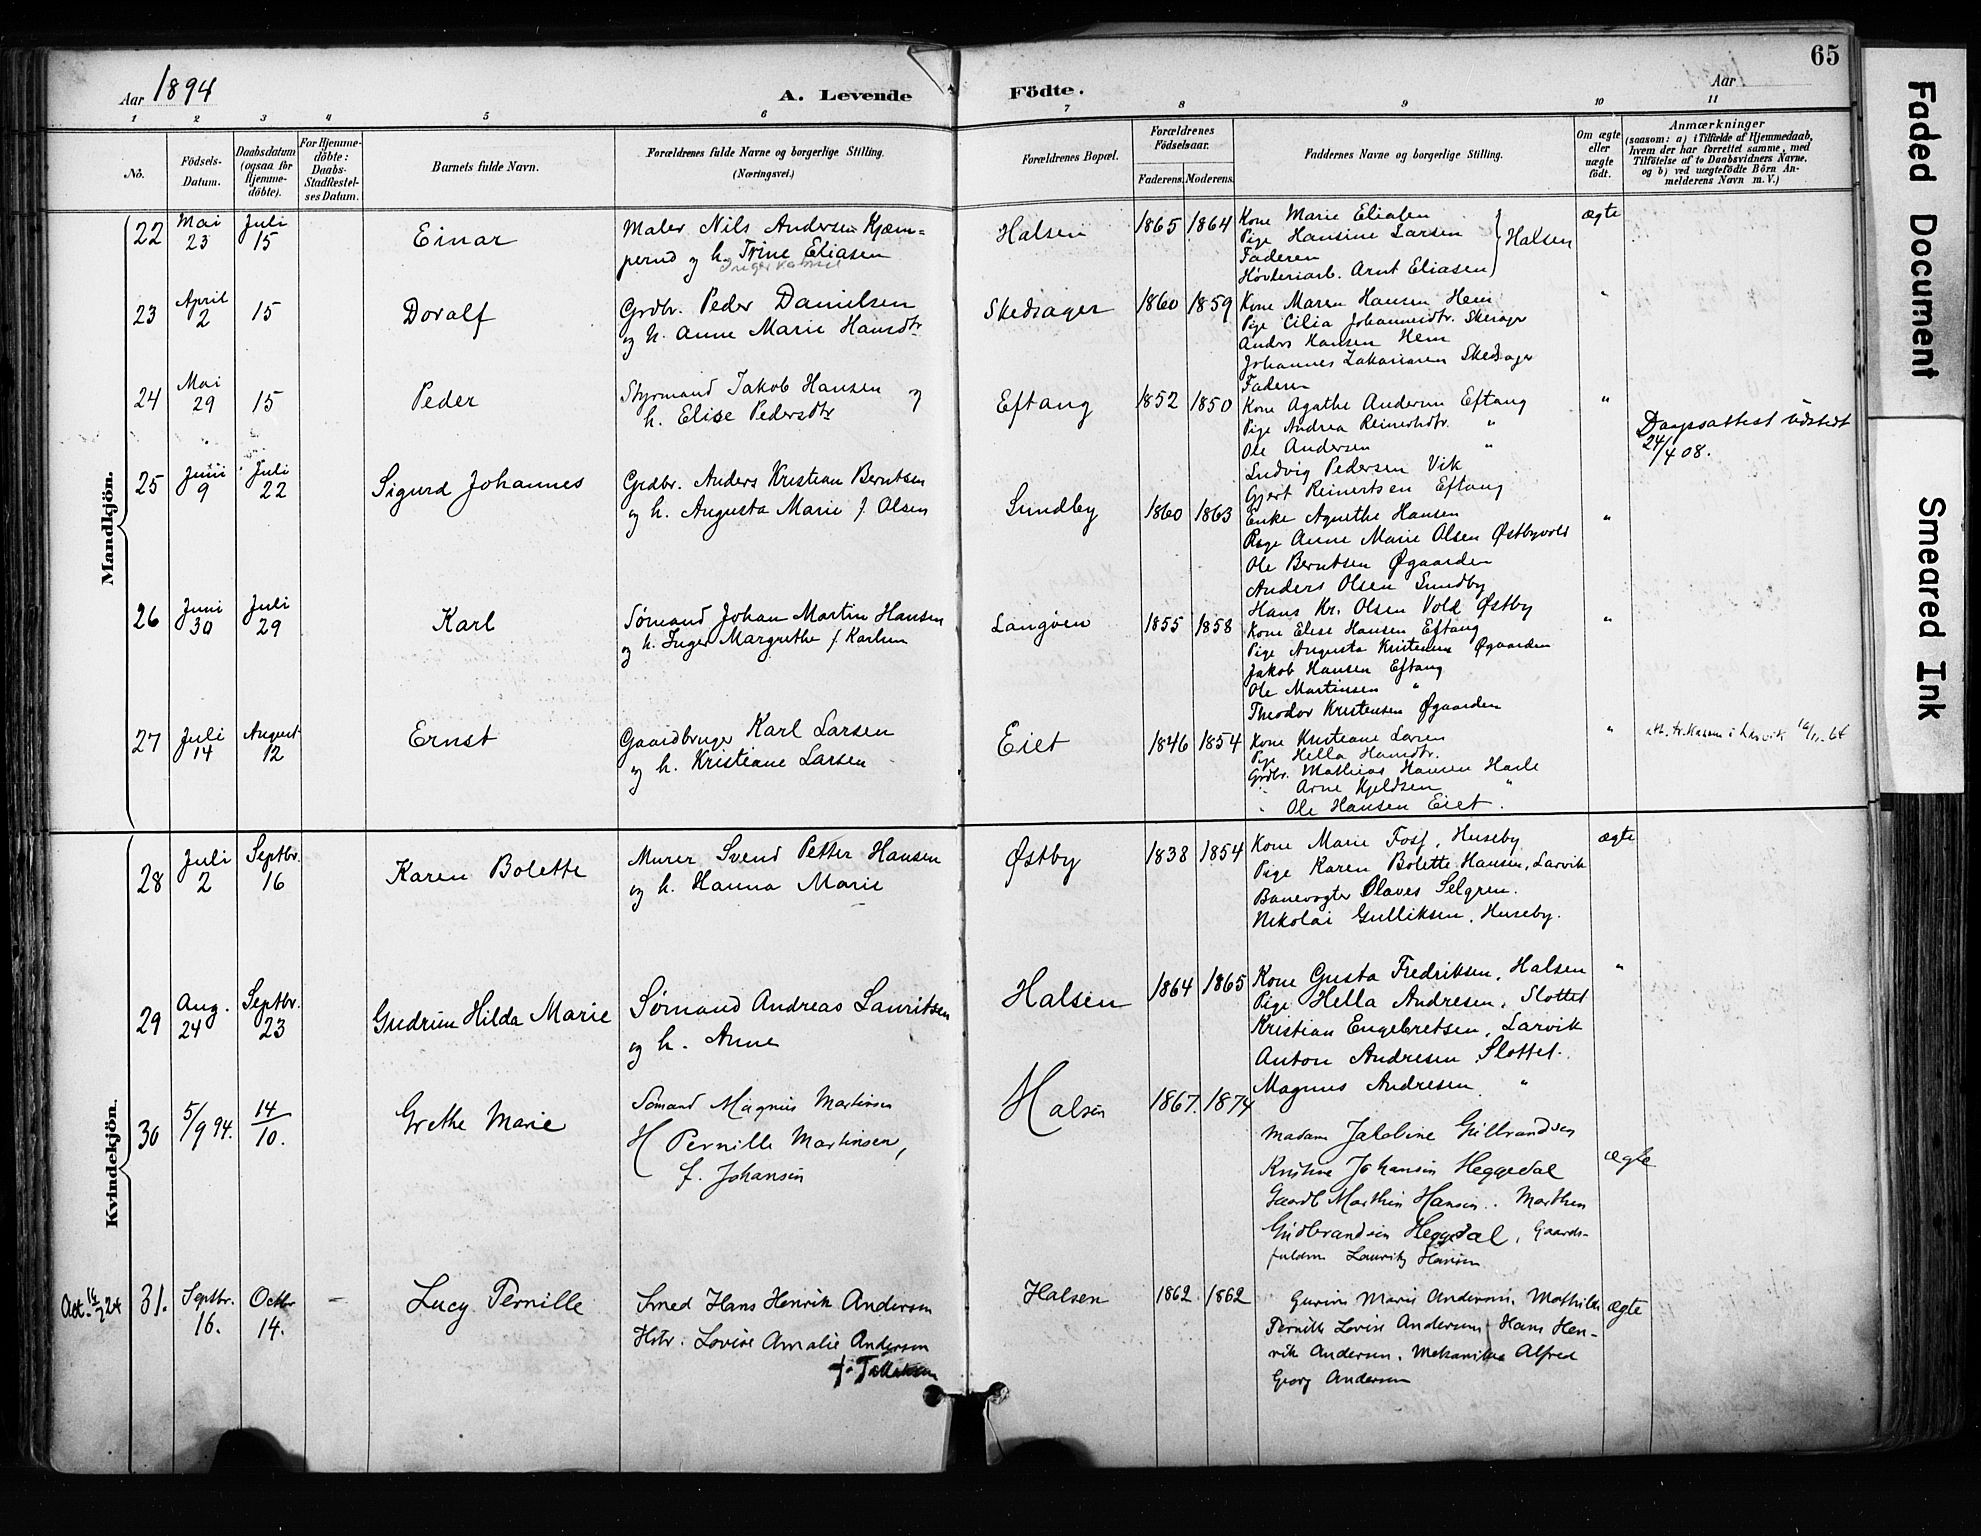 65
Aar 1894
A. Levende Födte.
Aar
1 2 3 4 5 6 7 8 9 10 11
No.
Födsels-Datum.
Daabsdatum (ogsaa for Hjemme-döbte).
For Hjemme-döbte: Daabs-Stadfæstel-ses Datum.
Barnets fulde Navn.
Forældrenes fulde Navne og borgerlige Stilling. (Næringsvei.)
Forældrenes Bopæl.
Forældrenes Födselsaar.
Faderens. Moderens.
Faddernes Navne og borgerlige Stilling.
Om ægte eller uægte födt.
Anmærkninger
(saasom: a) i Tilfælde af Hjemmedaab,
hvem der har forrettet samme, med
Tilföielse af to Daabsvidners Navne,
og b) ved uægtefödte Börn An-
melderens Navn m. V.)
Mandkjön.
22 Mai 23 Juli 15
Einar
Maler Nils Andersen Kjæm-
perud og h. Trine Eliasen
Halsen
1865 1864
Kone Marie Eliasen
Pige Hansine Larsen
Faderen
Høvleriarb. Arnt Eliasen
Halsen
ægte
23 April 2 15
Doralf
Grdbr. Peder Danielsen
og h. Anne Marie Hansdtr
Skedsager
1860 1859
Kone Maren Hansen Hem
Pige Cilia Johannesdtr. Skesager
Anders Hansen Hem
Johannes Zakariasen Skedsager
Faderen
"
24 Mai 29 15
Peder
Styrmand Jakob Hansen og
h. Elise Pedersdtr
Eftang
1852 1850
Kone Agathe Andersen Eftang
Pige Andrea Reinertsdtr. "
Ole Andersen "
Ludvig Pedersen Vik
Gjert Reinertsen Eftang
"
Daapsattest udstedt
24/4 08.
25 Juni 9 Juli 22
Sigurd Johannes
Grdbr. Anders Kristian Berntsen
og h. Augusta Marie f. Olsen
Sundby
1860 1863
Enke Agnethe Hansen
Pige Anne Marie Olsen Østbyvold
Ole Berntsen Øgaarden
Anders Olsen Sundby
Hans Kr. Olsen Vold Østby
"
26 Juni 30 Juli 29
Karl
Sømand Johan Martin Hansen
og h. Inger Margrethe f. Karlsen
Langøen
1855 1858
Kone Elise Hansen Eftang
Pige Augusta Kristensen Øgaarden
Jakob Hansen Eftang
Ole Martinsen "
Theodor Kristensen Øgaarden
"
27 Juli 14 August 12
Ernst
Gaardbruger Karl Larsen
og h. Kristiane Larsen
Eiet
1846 1854
Kone Kristiane Larsen
Pige Hella Hansdtr.
Grdbr. Mathias Hansen Hasle
" Arne Kjeldsen "
" Ole Hansen Eiet.
"
Kvindekjön.
28 Juli 2 Septbr. 16
Karen Bolette
Murer Svend Petter Hansen
og h. Hanna Marie
Østby
1838 1854
Kone Marie Foss, Huseby
Pige Karen Bolette Hansen, Larvik
Banevogter Olaves Selgren.
Nikolai Gulliksen, Huseby.
ægte
29 Aug. 24 Septbr. 23
Gudrun Hilda Marie
Sømand Andreas Lauritsen
og h. Anne
Halsen
1864 1865
Kone Gusta Fredriksen, Halsen
Pige Hella Andresen, Slottet
Kristian Engebretsen, Larvik
Anton Andresen, Slottet.
Magnus Andresen "
"
30 5/9 94. 14/10.
Grethe Marie
Sömand Magnus Martinsen
H Pernille Martinsen,
f. Johansen
Halsen
1867. 1874
Madame Jakobine Gulbrandsen
Kristine Johansen Heggedal
Gaardb Marthin Hansen. Marthin
Gudbrandsen Heggedal, Gaards-
fuldm Lauritz Hansen
ægte
Act. 16/7 24
31. Septbr. 16. Octbr 14. –
Lucy Pernille
Smed Hans Henrik Andersen
Hstr. Lovise Amalie Andersen
f. Tollaksen
Halsen
1862 1862
Gurine Marie Andersen, Mathilde
Pernille Lovise Andersen, Hans Hen-
rik Andersen, Mekaniker Alfred
Georg Andersen
ægte
Faded Document
Smeared Ink